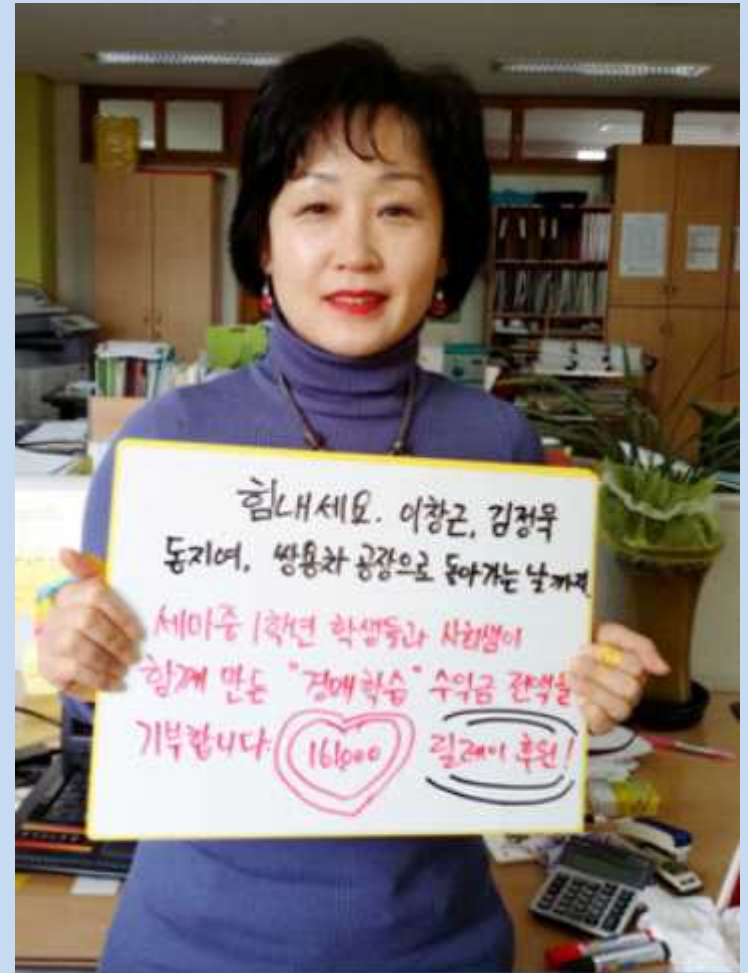 힘내세요. 이창근, 김정욱
동지여, 쌍용차 공장으로 돌아가는 날까지
세마중 1학년 학생들과 사회샘이
함께 만든 "경매학습" 수익금 전액을
기부합니다. 161,000 릴레이 후원!